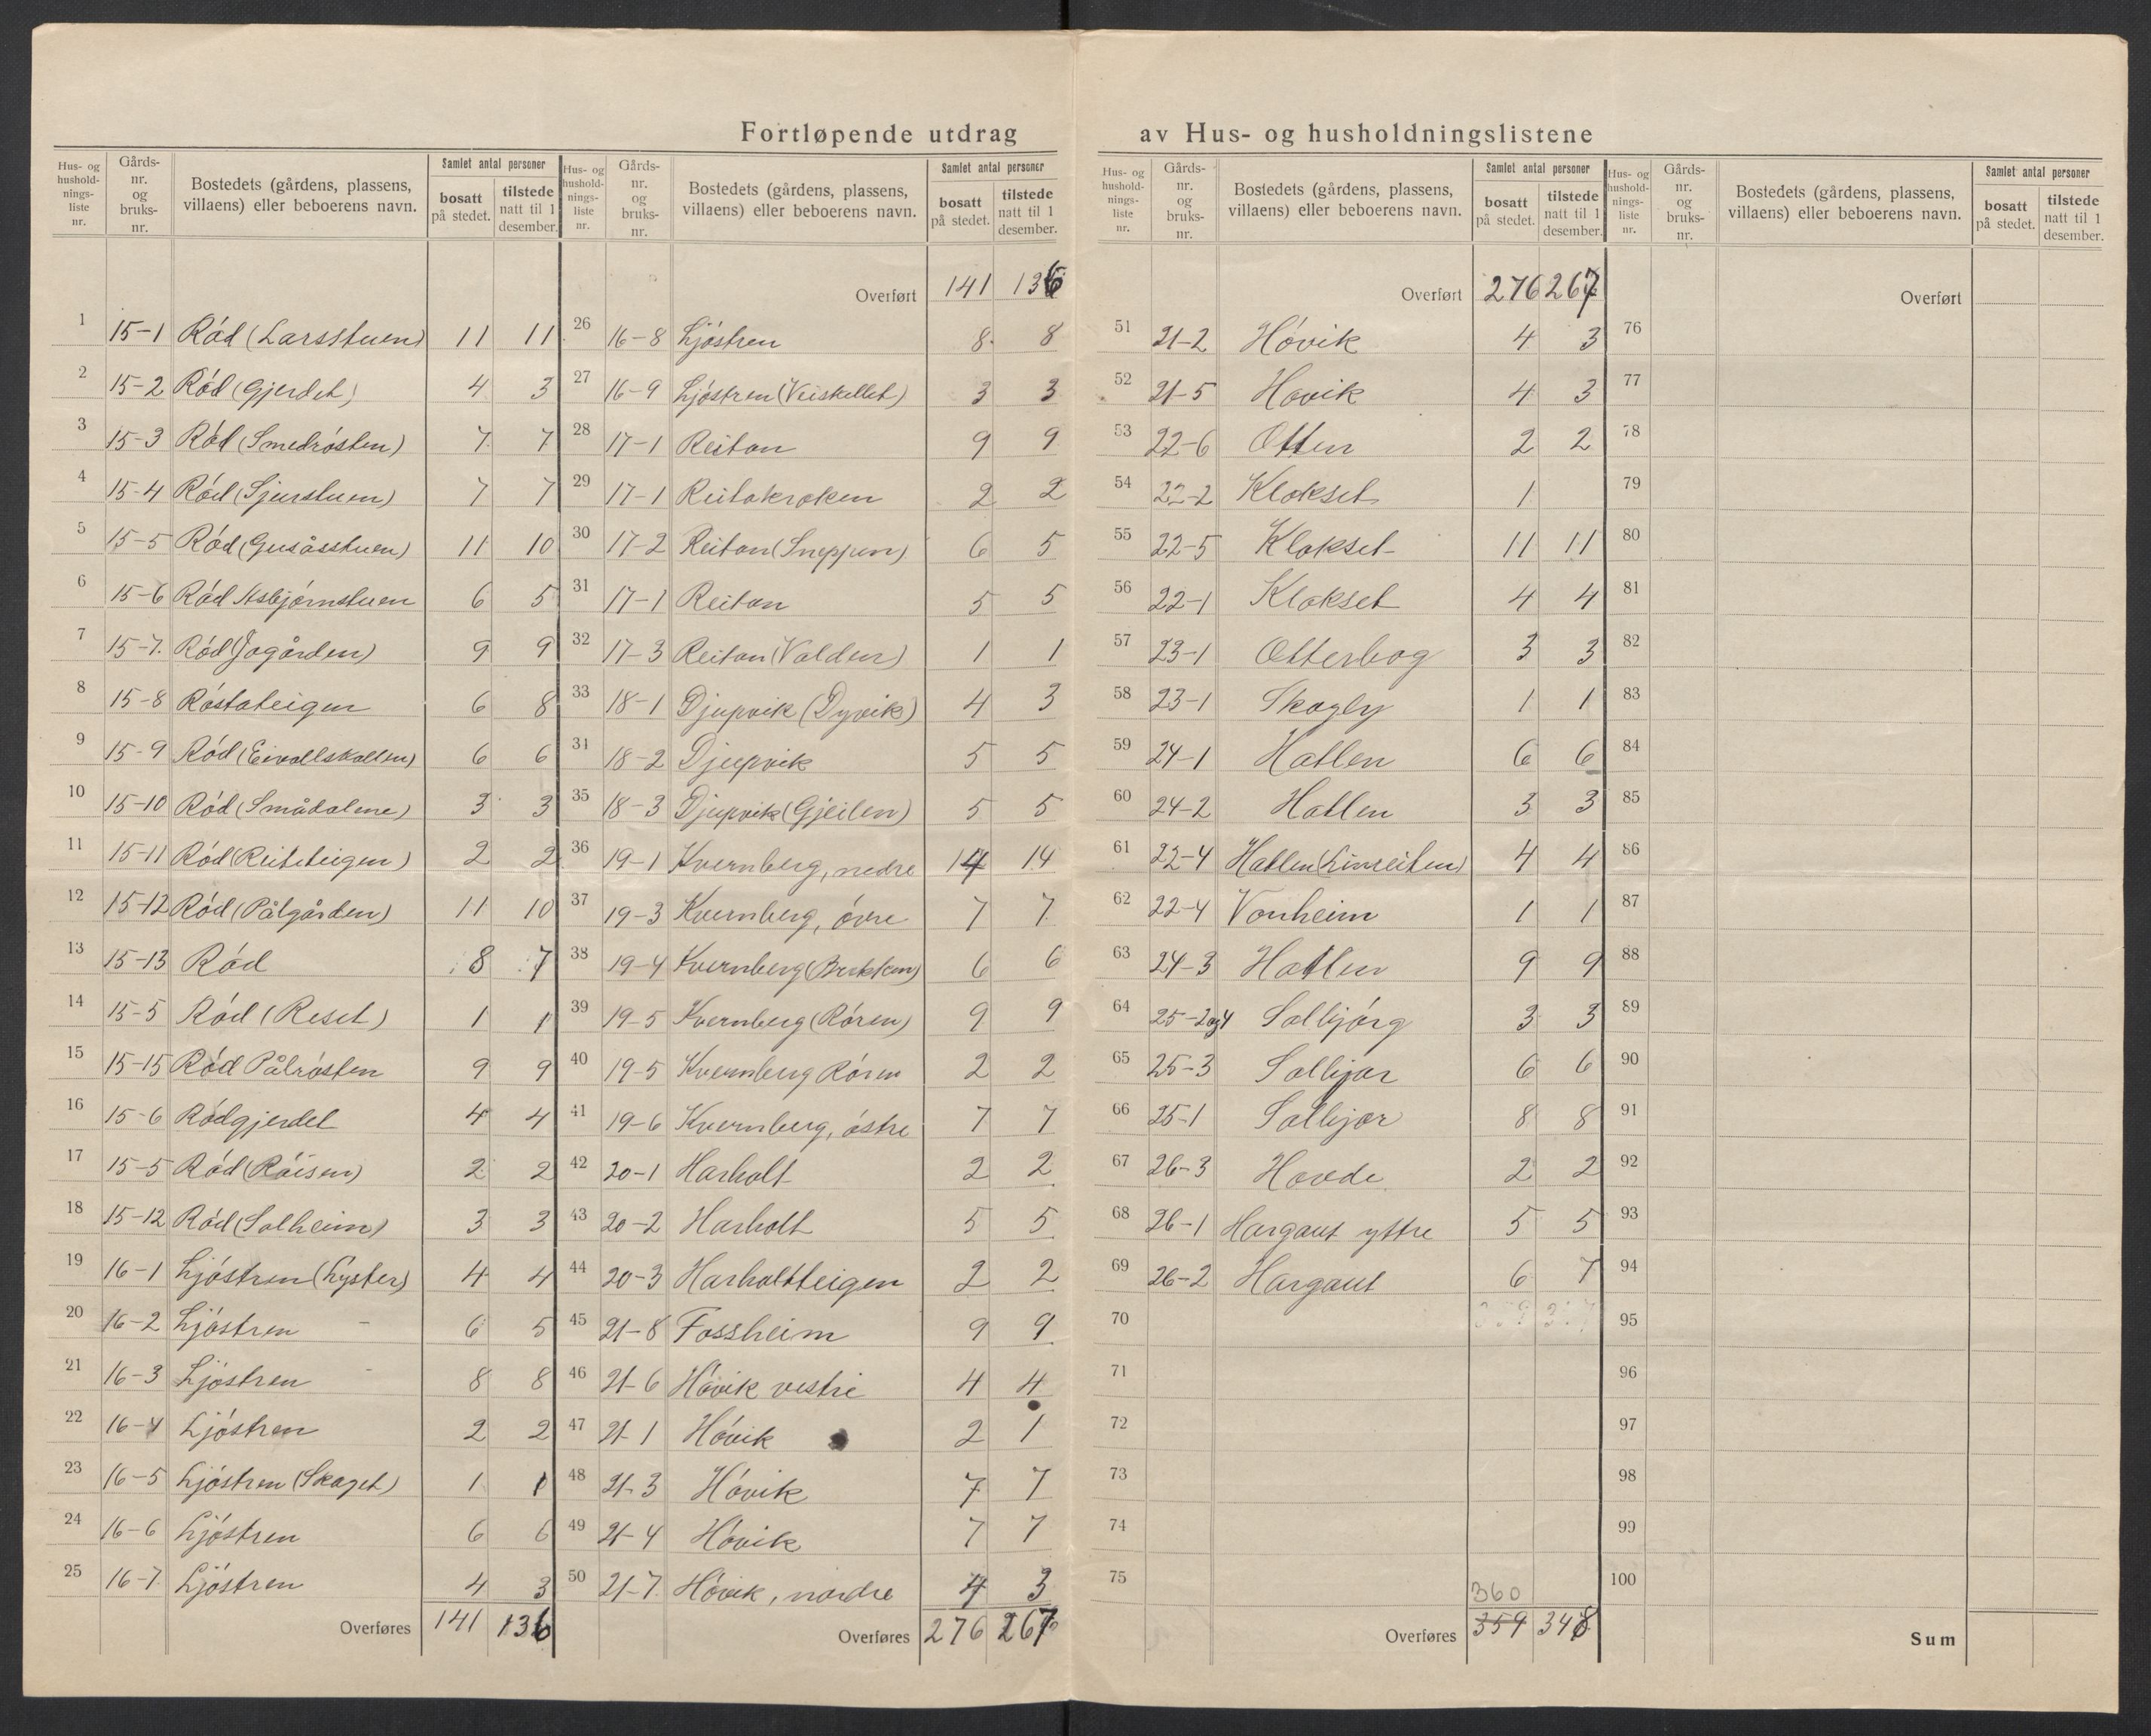 Fortløpende utdrag av Hus- og husholdningslistene
Hus- og hushold-nings-liste nr. | Gårds-nr. og bruks-nr. | Bostedets (gårdens, plassens, villaens) eller beboerens navn. | Samlet antal personer | bosatt på stedet. | tilstede natt til 1 desember.
1 15-1 Rød (Larsstuen) 11 11
2 15-2 Rød (Gjerdet) 4 3
3 15-3 Rød (Smedrøsten) 7 7
4 15-4 Rød (Sjurstuen) 7 7
5 15-5 Rød (Gusåsstuen) 11 10
6 15-6 Rød Asbjørnstuen 6 5
7 15-7. Rød (Jogården) 9 9
8 15-8 Røstateigen 6 8
9 15-9 Rød (Eivollskallen) 6 6
10 15-10 Rød (Smådalene) 3 3
11 15-11 Rød (Reiteteigen) 2 2
12 15-12 Rød (Pålgården) 11 10
13 15-13 Rød 8 7
14 15-5 Rød (Reset) 1 1
15 15-15 Rød Pålrøsten 9 9
16 15-6 Rødgjerdet 4 4
17 15-5 Rød (Røisen) 2 2
18 15-12 Rød (Solheim) 3 3
19 16-1 Ljøstren (Lyster) 4 4
20 16-2 Ljøstren - 6 5
21 16-3 Ljøstren - 8 8
22 16-4 Ljøstren 2 2
23 16-5 Ljøstren (Skaget) 1 1
24 16-6 Ljøstren 6 6
25 16-7 Ljøstren 4 3
Overføres 141 136
Hus- og hushold-nings-liste nr. | Gårds-nr. og bruks-nr. | Bostedets (gårdens, plassens, villaens) eller beboerens navn. | Samlet antal personer | bosatt på stedet. | tilstede natt til 1 desember.
Overført 141 136
26 16-8 Ljøstren 8 8
27 16-9 Ljøstren (Veiskellet) 3 3
28 17-1 Reitan 9 9
29 17-1 Reitakroken 2 2
30 17-2 Reitan (Sneppen) 6 5
31 17-1 Reitan 5 5
32 17-3 Reitan (Valden) 1 1
33 18-1 Djupvik (Dyvik) 4 3
34 18-2 Djupvik 5 5
35 18-3 Djupvik (Gjeilen) 5 5
36 19-1 Kvernberg, nedre 14 14
37 19-3 Kvernberg, øvre 7 7
38 19-4 Kvernberg (Brekken) 6 6
39 19-5 Kvernberg (Røren) 9 9
40 19-5 Kvernberg Røren 2 2
41 19-6 Kvernberg, østre 7 7
42 20-1 Harholt 2 2
43 20-2 Harholt 5 5
44 20-3 Harholtteigen 2 2
45 21-8 Fossheim 9 9
46 21-6 Høvik vestre 4 4
47 21-1 Høvik 2 1
48 21-3 Høvik 7 7
49 21-4 Høvik 7 7
50 21-7. Høvik, nordre 4 3
Overføres 276 267
Hus- og hushold-nings-liste nr. | Gårds-nr. og bruks-nr. | Bostedets (gårdens, plassens, villaens) eller beboerens navn. | Samlet antal personer | bosatt på stedet. | tilstede natt til 1 desember.
Overført 276 267
51 21-2 Høvik 4 3
52 21-5 Høvik 4 3
53 22-6 Otten 2 2
54 22-2 Klokset 1
55 22-5 Klokset 11 11
56 22-1 Klokset 4 4
57 23-1 Otterbog 3 3
58 23-1 Skogly 1 1
59 24-1 Hatlen 6 6
60 24-2 Hatlen 3 3
61 22-4 Hatlen (Linreiten) 4 4
62 22-4 Vonheim 1 1
63 24-3 Hatlen 9 9
64 25-2og4 Solbjørg 3 3
65 25-3 Solbjør 6 6
66 25-1 Solbjør 8 8
67 26-3 Hovde 2 2
68 26-1 Hargaut yttre 5 5
69 26-2 Hargaut 6 7
70
71
72
73
74
75
360
Overføres 359 348
Hus- og hushold-nings-liste nr. | Gårds-nr. og bruks-nr. | Bostedets (gårdens, plassens, villaens) eller beboerens navn. | Samlet antal personer | bosatt på stedet. | tilstede natt til 1 desember.
Overført
76
77
78
79
80
81
82
83
84
85
86
87
88
89
90
91
92
93
94
95
96
97
98
99
100
Sum